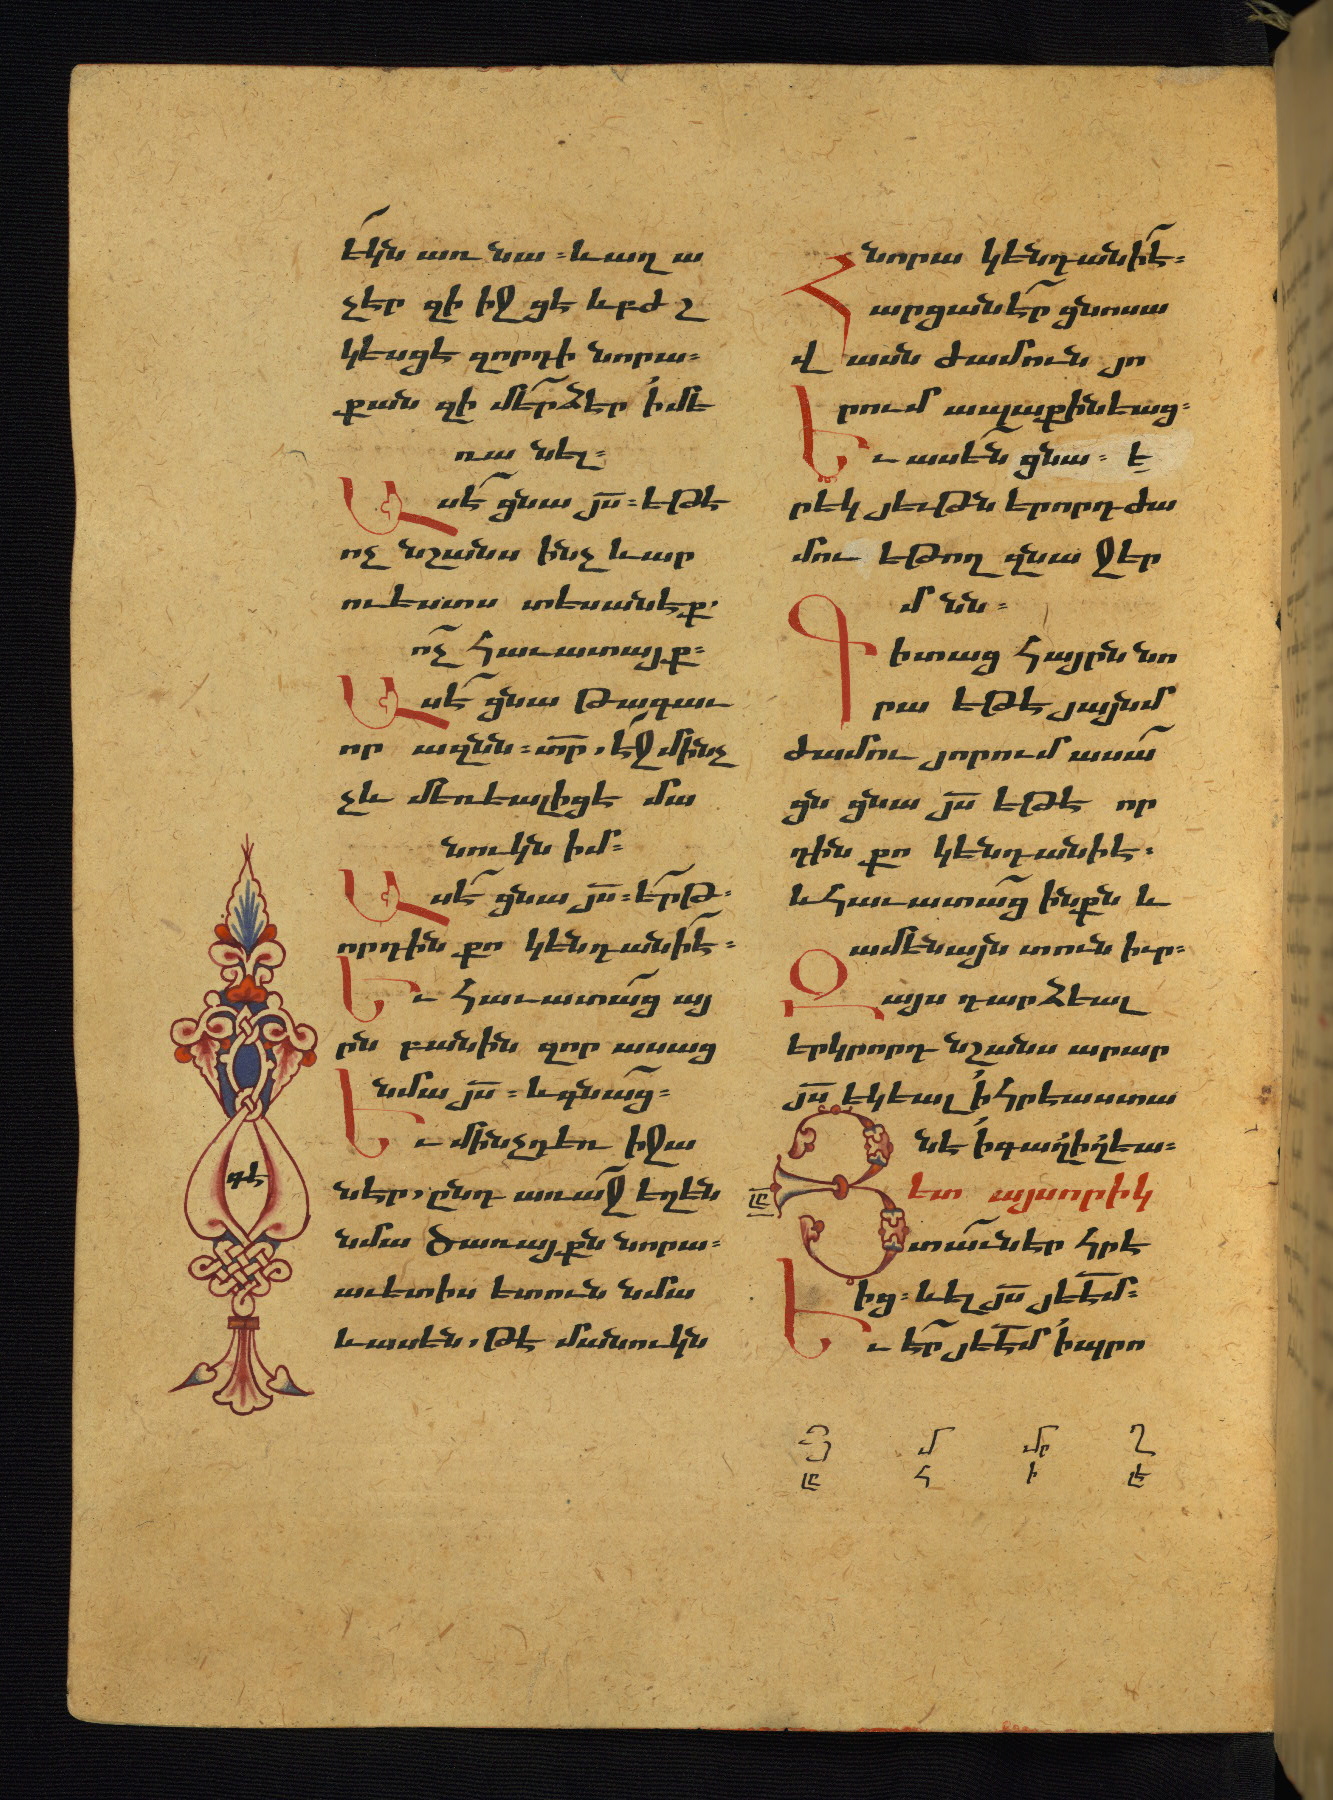 եկն առ նա։ և աղ ա
չէր զի իջցէ և բժշ
կեսցէ զորդի նորա։
քան զի մերձ էր ի մե
ռանել։
Ասէ ցնա յս։ եթէ
ոչ նշանս ինչ և ար
ուեստս տեսանէք,
ոչ հաւատայք։
Ասէ ցնա թագաւ
որ ազնն։ տր, էջ մինչ
չև մեռեալ իցէ մա
նուկն իմ։
Ասէ ցնա յս։ երթ.
որդին քո կենդանի է։
Եւ հաւատաց այ
րն բանին զոր ասաց
նմա յս։ և գնաց։
Եւ մինչդեռ իջա
նէր, ընդ առաջ եղեն
նմա ծառայքն նորա։
աւետիս ետուն նմա
և ասեն, թէ մանուկն
նորա կենդանի է։
Հարցանէր ցնոսա
վասն ժամուն յո
րում ապաքինեաց։
Եւ ասեն ցնա։ է
րէկ յեւթն երորդ ժա
մու եթող զնա ջեր
մնն։
Գիտաց հայրն նո
րա եթէ յայնմ
ժամու յորում ասա
ցն ցնա յս եթէ որ
դին քո կենդանի է.
և հաւատաց ինքն և
ամենայն տուն իւր։
Զայս դարձեալ
երկրորդ նշանս արար
յս եկեալ ի հրէաստա
նէ ի գաղիղեա։
Յետ այսորիկ
տաւներ հրէ
ից։ և ել յս յեէմ։
Եւ էր յեէմ ի պրո
գե